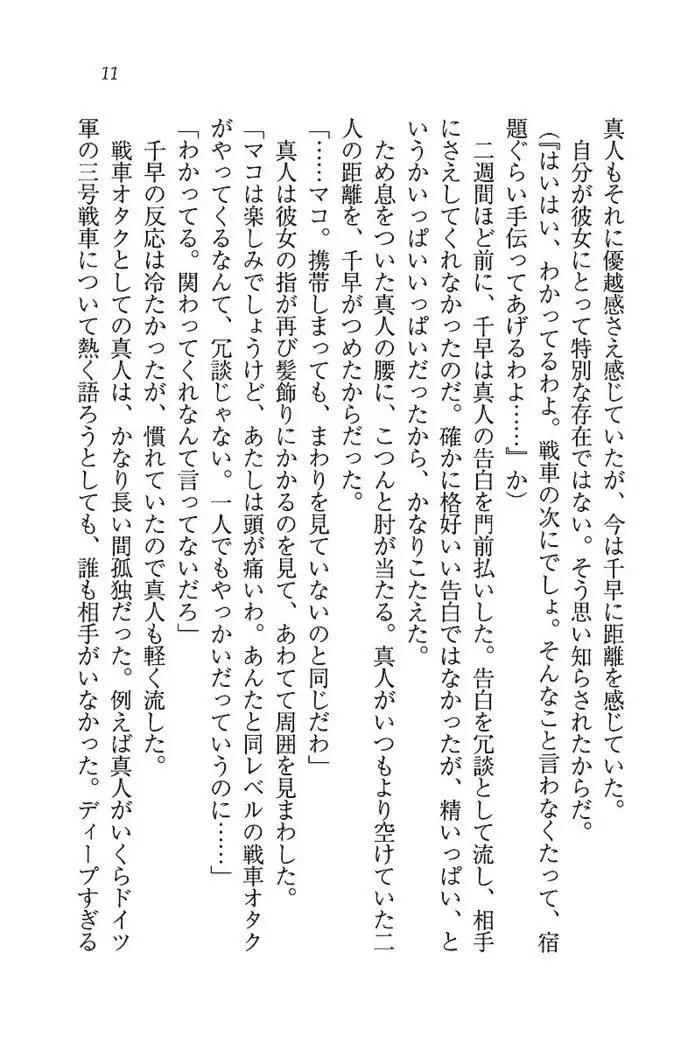 11
真人もそれに優越感さえ感じていたが、今は千早に距離を感じていた。
自分が彼女にとって特別な存在ではない。そう思い知らされたからだ。
(『はいはい、わかってるわよ。戦車の次にでしょ。そんなこと言わなくたって、宿
題ぐらい手伝ってあげるわよ……』か)
二週間ほど前に、千早は真人の告白を門前払いした。告白を冗談として流し、相手
にさえしてくれなかったのだ。確かに格好いい告白ではなかったが、精いっぱい、と
いうかいっぱいいっぱいだったから、かなりこたえた。
ため息をついた真人の腰に、こつんと肘が当たる。真人がいつもより空けていた二
人の距離を、千早がつめたからだった。
「……マコ。携帯しまっても、まわりを見ていないのと同じだわ」
真人は彼女の指が再び髪飾りにかかるのを見て、あわてて周囲を見まわした。
「マコは楽しみでしょうけど、あたしは頭が痛いわ。あんたと同レベルの戦車オタク
がやってくるなんて、冗談じゃない。一人でもやっかいだっていうのに……」
「わかってる。関わってくれなんて言ってないだろ」
千早の反応は冷たかったが、慣れていたので真人も軽く流した。
戦車オタクとしての真人は、かなり長い間孤独だった。例えば真人がいくらドイツ
軍の三号戦車について熱く語ろうとしても、誰も相手がいなかった。ディープすぎる